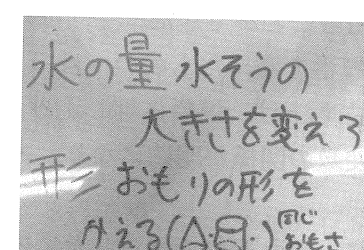 水の量 水そうの
大きさを変えろ
形 おもりの形を
かえる(△・
同じ
おもさ